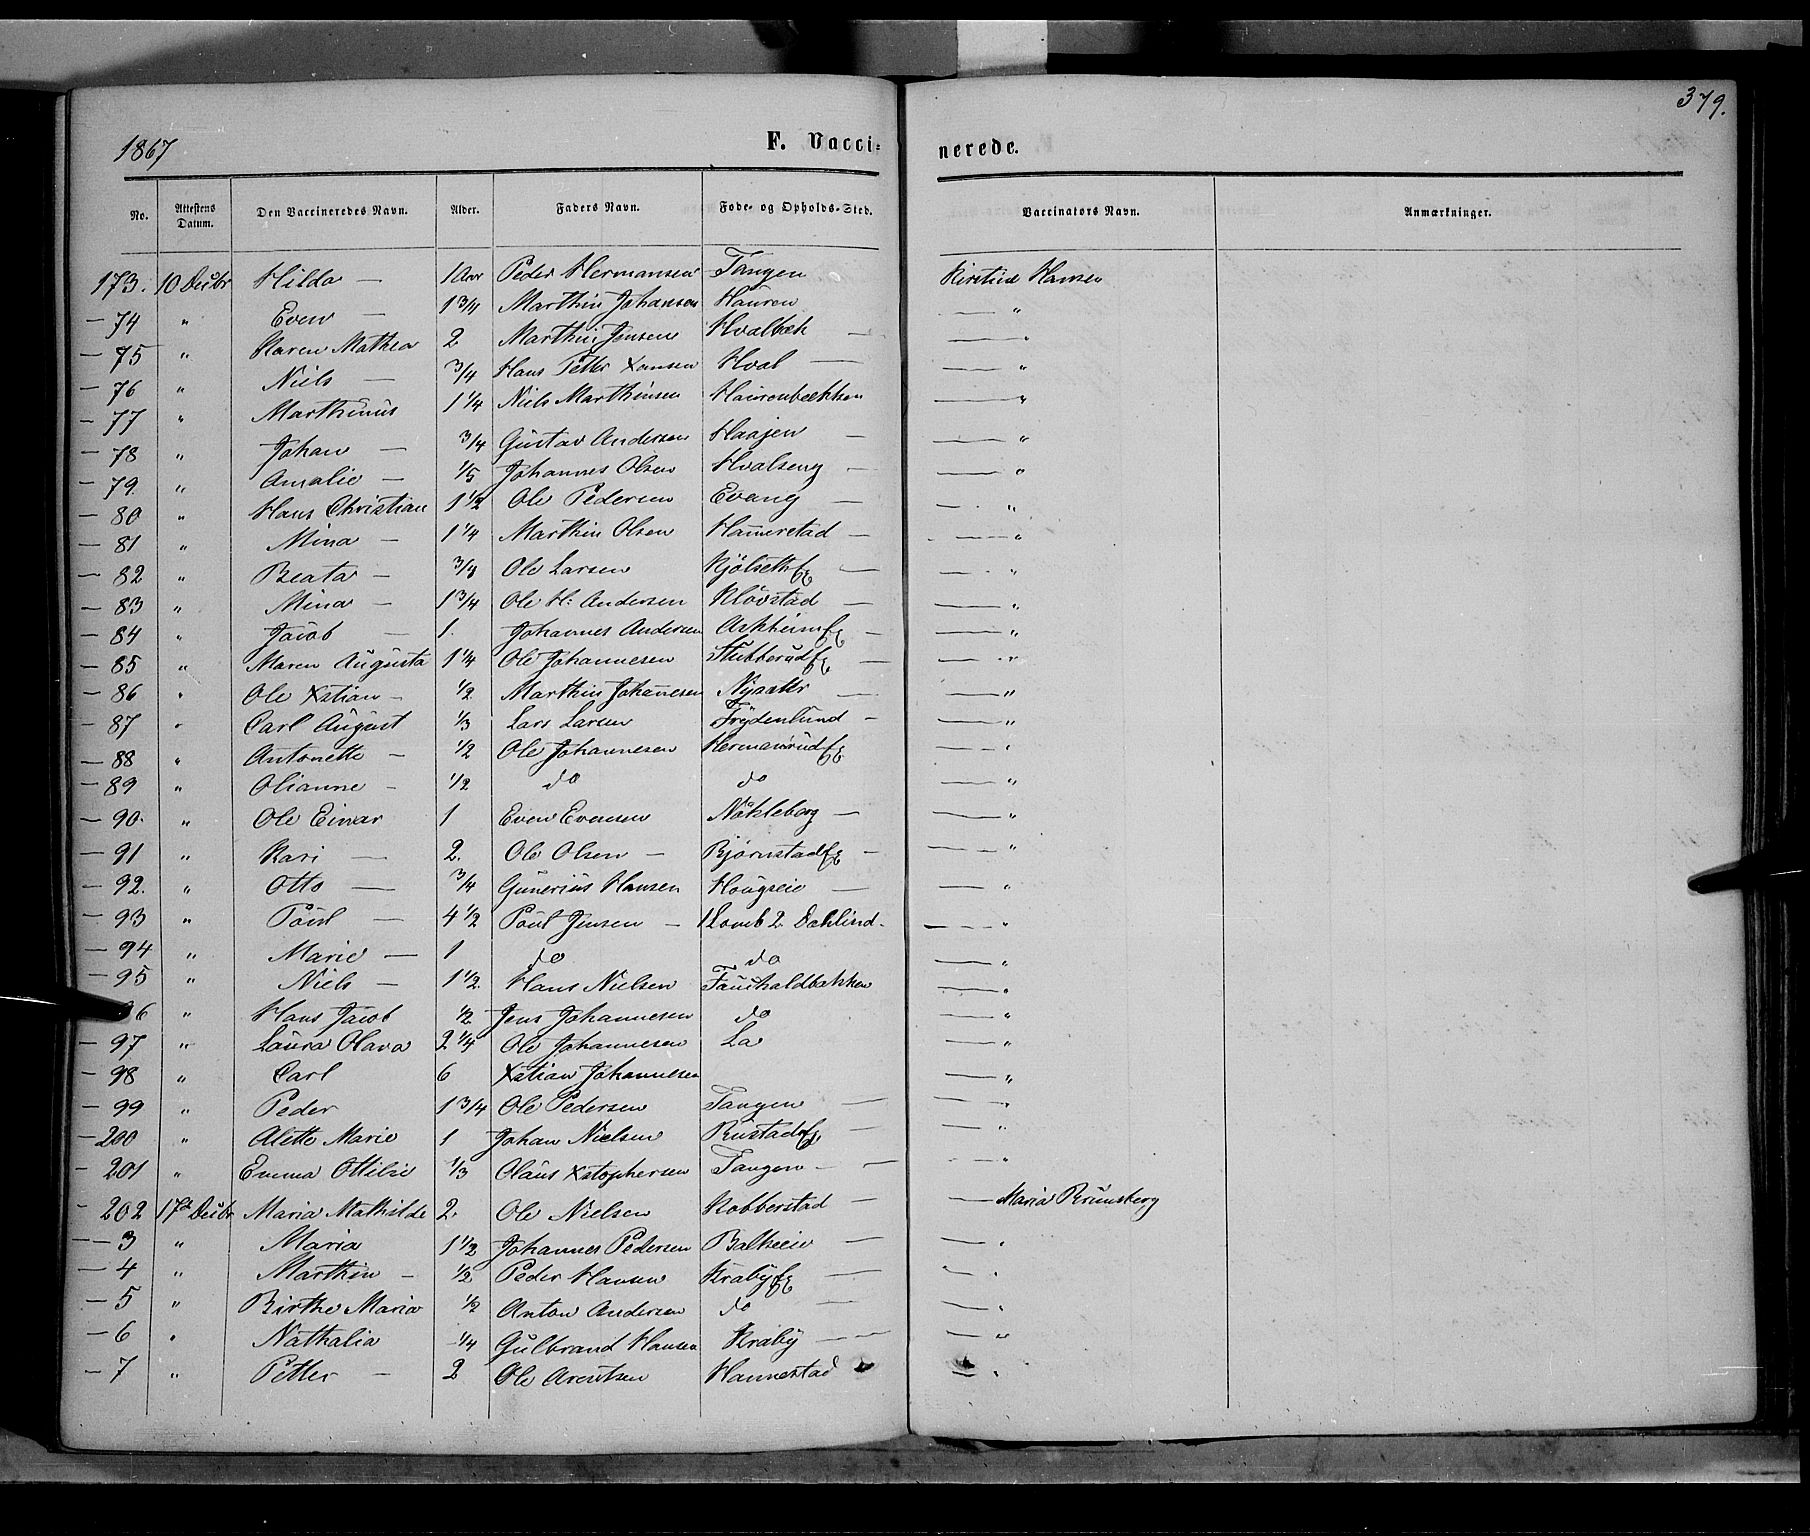 379.
1867 F. Vacci- nerede.
No. Attestens Datum. Den Vaccineredes Navn. Alder. Faders Navn. Føde- og Opholds-Sted. Vaccinators Navn. Anmærkninger.
173. 10 Decbr Hilda — 1 Aar Peder Hermansen Tangen Kirstine Hansen
— 74 " Even — 1 3/4 Marthin Johansen Hauren — "
— 75 " Karen Mathea 2 Marthin Jensen Hvalbæk — — "
— 76 " Niels — 3/4 Hans Petter Xansen Hval — — "
— 77 " Marthinus 1 1/4 Niels Marthinsen Haurenbækken — "
— 78 " Johan — 3/4 Gustav Andersen Haajen — — "
— 79. " Amalie — 1/5 Johannes Olsen Hvalseng — — "
— 80 " Hans Christian 1 1/2 Ole Pedersen Evang — — "
— 81 " Mina — 1 1/4 Marthin Olsen Hammerstad — — "
— 82 " Beata — 3/4 Ole Larsen Kjølseth — — "
— 83 " Mina — 1 3/4 Ole H: Andersen Kløvstad — — "
— 84 " Jacob — 1. Johannes Andersen — — "
— 85 " Maren Augusta 1 1/4 Ole Johannesen Stubberud — — "
— 86 " Ole Xstian — 1/2 Marthin Johannesen — — "
— 87 " Carl August 1/3 Lars Larsen Frydenlund — — "
— 88 " Antonette — 1/2 Ole Johannesen Hermanrud — "
— 89 " Olianne — 1/2 do do — "
— 90. " Ole Einar 1 Even Evensen Nøkleborg — — "
— 91 " Kari — 2. Ole Olsen — Bjørnstad — — "
— 92. " Otto — 3/4 Gunerius Hansen Hougseie — — "
— 93 " Poul — 4 1/2 Poul Jensen — 1 Lomb 2. Dahlind. — "
— 94 " Marie — 1 do do — "
— 95 " Niels — 1 1/2 Hans Nielsen Fauchaldbakken — "
96 " Hans Jacob 1/2 Jens Johannesen do — "
— 97 " Laura Olava 2 1/4 Ole Johannesen La — "
— 98 " Carl 6 Xstian Johannesen — "
— 99 " Peder 1 3/4 Ole Pedersen Tangen — — "
— 200 " Alette Marie 1 Johan Nielsen Rustad — — "
— 201 " Emma Ottilie 1/3 Olaus Xstophersen Tangen — — "
— 202 17d Decbr Maria Mathilde 2. Ole Nielsen Robberstad — — Maria Brunsberg
— 3 " Maria 1 1/2 Johannes Pedersen Balkeeie — — "
— 4 " Marthin — 1/2 Peder Hansen Kraby — — "
— 5 " Birthe Maria 1/2 Anton Andersen do — — "
— 6 " Nathalia 1/4 Gulbrand Hansen Kraby — — "
— 7 " Petter — 2 Ole Arentsen Hannestad — "